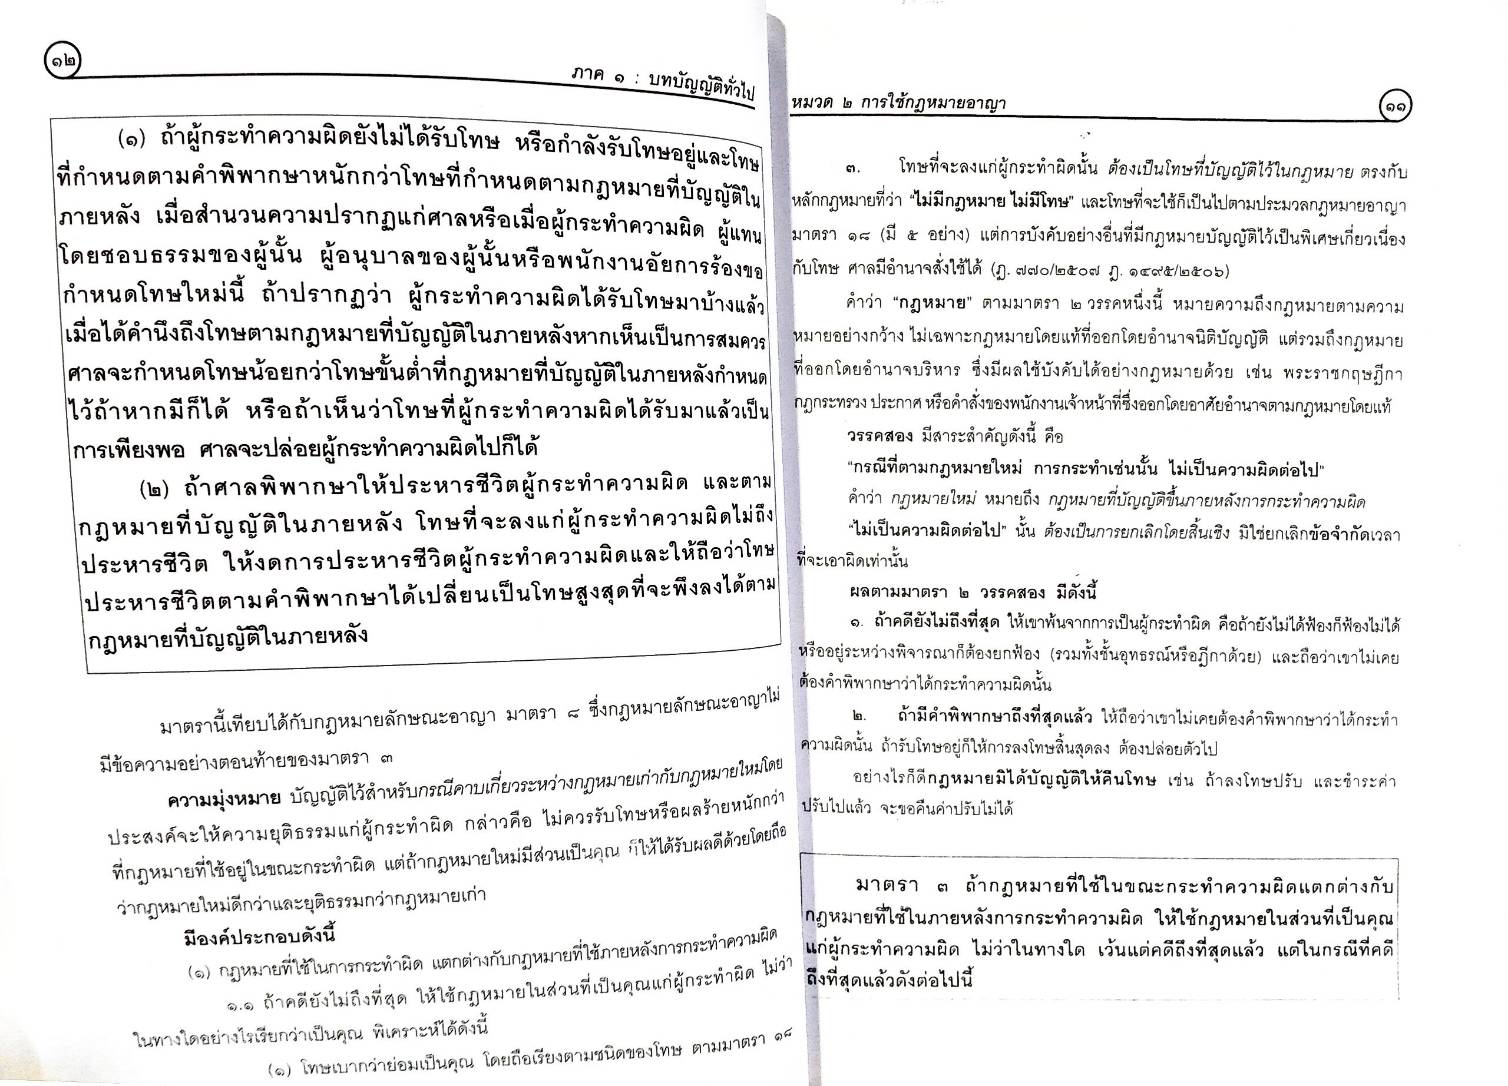 ๑๒
ภาค ๑ : บทบัญญัติทั่วไป
(๑) ถ้าผู้กระทำความผิดยังไม่ได้รับโทษ หรือกำลังรับโทษอยู่และโทษ
ที่กำหนดตามคำพิพากษาหนักกว่าโทษที่กำหนดตามกฎหมายที่บัญญัติใน
ภายหลัง เมื่อสำนวนความปรากฏแก่ศาลหรือเมื่อผู้กระทำความผิด ผู้แทน
โดยชอบธรรมของผู้นั้น ผู้อนุบาลของผู้นั้นหรือพนักงานอัยการร้องขอ
กำหนดโทษใหม่นี้ ถ้าปรากฏว่า ผู้กระทำความผิดได้รับโทษมาบ้างแล้ว
เมื่อได้คำนึงถึงโทษตามกฎหมายที่บัญญัติในภายหลังหากเห็นเป็นการสมควร
ศาลจะกำหนดโทษน้อยกว่าโทษขั้นต่ำที่กฎหมายที่บัญญัติในภายหลังกำหนด
ไว้ถ้าหากมีก็ได้ หรือถ้าเห็นว่าโทษที่ผู้กระทำความผิดได้รับมาแล้วเป็น
การเพียงพอ ศาลจะปล่อยผู้กระทำความผิดไปก็ได้
(๒) ถ้าศาลพิพากษาให้ประหารชีวิตผู้กระทำความผิด และตาม
กฎหมายที่บัญญัติในภายหลัง โทษที่จะลงแก่ผู้กระทำความผิดไม่ถึง
ประหารชีวิต ให้งดการประหารชีวิตผู้กระทำความผิดและให้ถือว่าโทษ
ประหารชีวิตตามคำพิพากษาได้เปลี่ยนเป็นโทษสูงสุดที่จะพึงลงได้ตาม
กฎหมายที่บัญญัติในภายหลัง
มาตรานี้เทียบได้กับกฎหมายลักษณะอาญา มาตรา ๘ ซึ่งกฎหมายลักษณะอาญาไม่
มีข้อความอย่างตอนท้ายของมาตรา ๓
ความมุ่งหมาย บัญญัติไว้สำหรับกรณีคาบเกี่ยวระหว่างกฎหมายเก่ากับกฎหมายใหม่โดย
ประสงค์จะให้ความยุติธรรมแก่ผู้กระทำผิด กล่าวคือ ไม่ควรรับโทษหรือผลร้ายหนักกว่า
ที่กฎหมายที่ใช้อยู่ในขณะกระทำผิด แต่ถ้ากฎหมายใหม่มีส่วนเป็นคุณ ก็ให้ได้รับผลดีด้วยโดยถือ
ว่ากฎหมายใหม่ดีกว่าและยุติธรรมกว่ากฎหมายเก่า
มีองค์ประกอบดังนี้
(๑) กฎหมายที่ใช้ในการกระทำผิด แตกต่างกับกฎหมายที่ใช้ภายหลังการกระทำความผิด
๑.๑ ถ้าคดียังไม่ถึงที่สุด ให้ใช้กฎหมายในส่วนที่เป็นคุณแก่ผู้กระทำผิด ไม่ว่า
ในทางใดอย่างไรเรียกว่าเป็นคุณ พิเคราะห์ได้ดังนี้
(๑) โทษเบากว่าย่อมเป็นคุณ โดยถือเรียงตามชนิดของโทษ ตามมาตรา ๑๘
หมวด ๒ การใช้กฎหมายอาญา
๑๑
๓. โทษที่จะลงแก่ผู้กระทำผิดนั้น ต้องเป็นโทษที่บัญญัติไว้ในกฎหมาย ตรงกับ
หลักกฎหมายที่ว่า "ไม่มีกฎหมาย ไม่มีโทษ" และโทษที่จะใช้ก็เป็นไปตามประมวลกฎหมายอาญา
มาตรา ๑๘ (มี ๕ อย่าง) แต่การบังคับอย่างอื่นที่มีกฎหมายบัญญัติไว้เป็นพิเศษเกี่ยวเนื่อง
กับโทษ ศาลมีอำนาจสั่งใช้ได้ (ฎ. ๗๗๐/๒๕๐๗ ฎ. ๑๔๙๕/๒๕๐๖)
คำว่า "กฎหมาย" ตามมาตรา ๒ วรรคหนึ่งนี้ หมายความถึงกฎหมายตามความ
หมายอย่างกว้าง ไม่เฉพาะกฎหมายโดยแท้ที่ออกโดยอำนาจนิติบัญญัติ แต่รวมถึงกฎหมาย
ที่ออกโดยอำนาจบริหาร ซึ่งมีผลใช้บังคับได้อย่างกฎหมายด้วย เช่น พระราชกฤษฎีกา
กฎกระทรวง ประกาศ หรือคำสั่งของพนักงานเจ้าหน้าที่ซึ่งออกโดยอาศัยอำนาจตามกฎหมายโดยแท้
วรรคสอง มีสาระสำคัญดังนี้ คือ
"กรณีที่ตามกฎหมายใหม่ การกระทำเช่นนั้น ไม่เป็นความผิดต่อไป"
คำว่า กฎหมายใหม่ หมายถึง กฎหมายที่บัญญัติขึ้นภายหลังการกระทำความผิด
"ไม่เป็นความผิดต่อไป" นั้น ต้องเป็นการยกเลิกโดยสิ้นเชิง มิใช่ยกเลิกข้อจำกัดเวลา
ที่จะเอาผิดเท่านั้น
ผลตามมาตรา ๒ วรรคสอง มีดังนี้
๑. ถ้าคดียังไม่ถึงที่สุด ให้เขาพ้นจากการเป็นผู้กระทำผิด คือถ้ายังไม่ได้ฟ้องก็ฟ้องไม่ได้
หรืออยู่ระหว่างพิจารณาก็ต้องยกฟ้อง (รวมทั้งชั้นอุทธรณ์หรือฎีกาด้วย) และถือว่าเขาไม่เคย
ต้องคำพิพากษาว่าได้กระทำความผิดนั้น
๒. ถ้ามีคำพิพากษาถึงที่สุดแล้ว ให้ถือว่าเขาไม่เคยต้องคำพิพากษาว่าได้กระทำ
ความผิดนั้น ถ้ารับโทษอยู่ก็ให้การลงโทษสิ้นสุดลง ต้องปล่อยตัวไป
อย่างไรก็ดีกฎหมายมิได้บัญญัติให้คืนโทษ เช่น ถ้าลงโทษปรับ และชำระค่า
ปรับไปแล้ว จะขอคืนค่าปรับไม่ได้
มาตรา ๓ ถ้ากฎหมายที่ใช้ในขณะกระทำความผิดแตกต่างกับ
กฎหมายที่ใช้ในภายหลังการกระทำความผิด ให้ใช้กฎหมายในส่วนที่เป็นคุณ
แก่ผู้กระทำความผิด ไม่ว่าในทางใด เว้นแต่คดีถึงที่สุดแล้ว แต่ในกรณีที่คดี
ถึงที่สุดแล้วดังต่อไปนี้